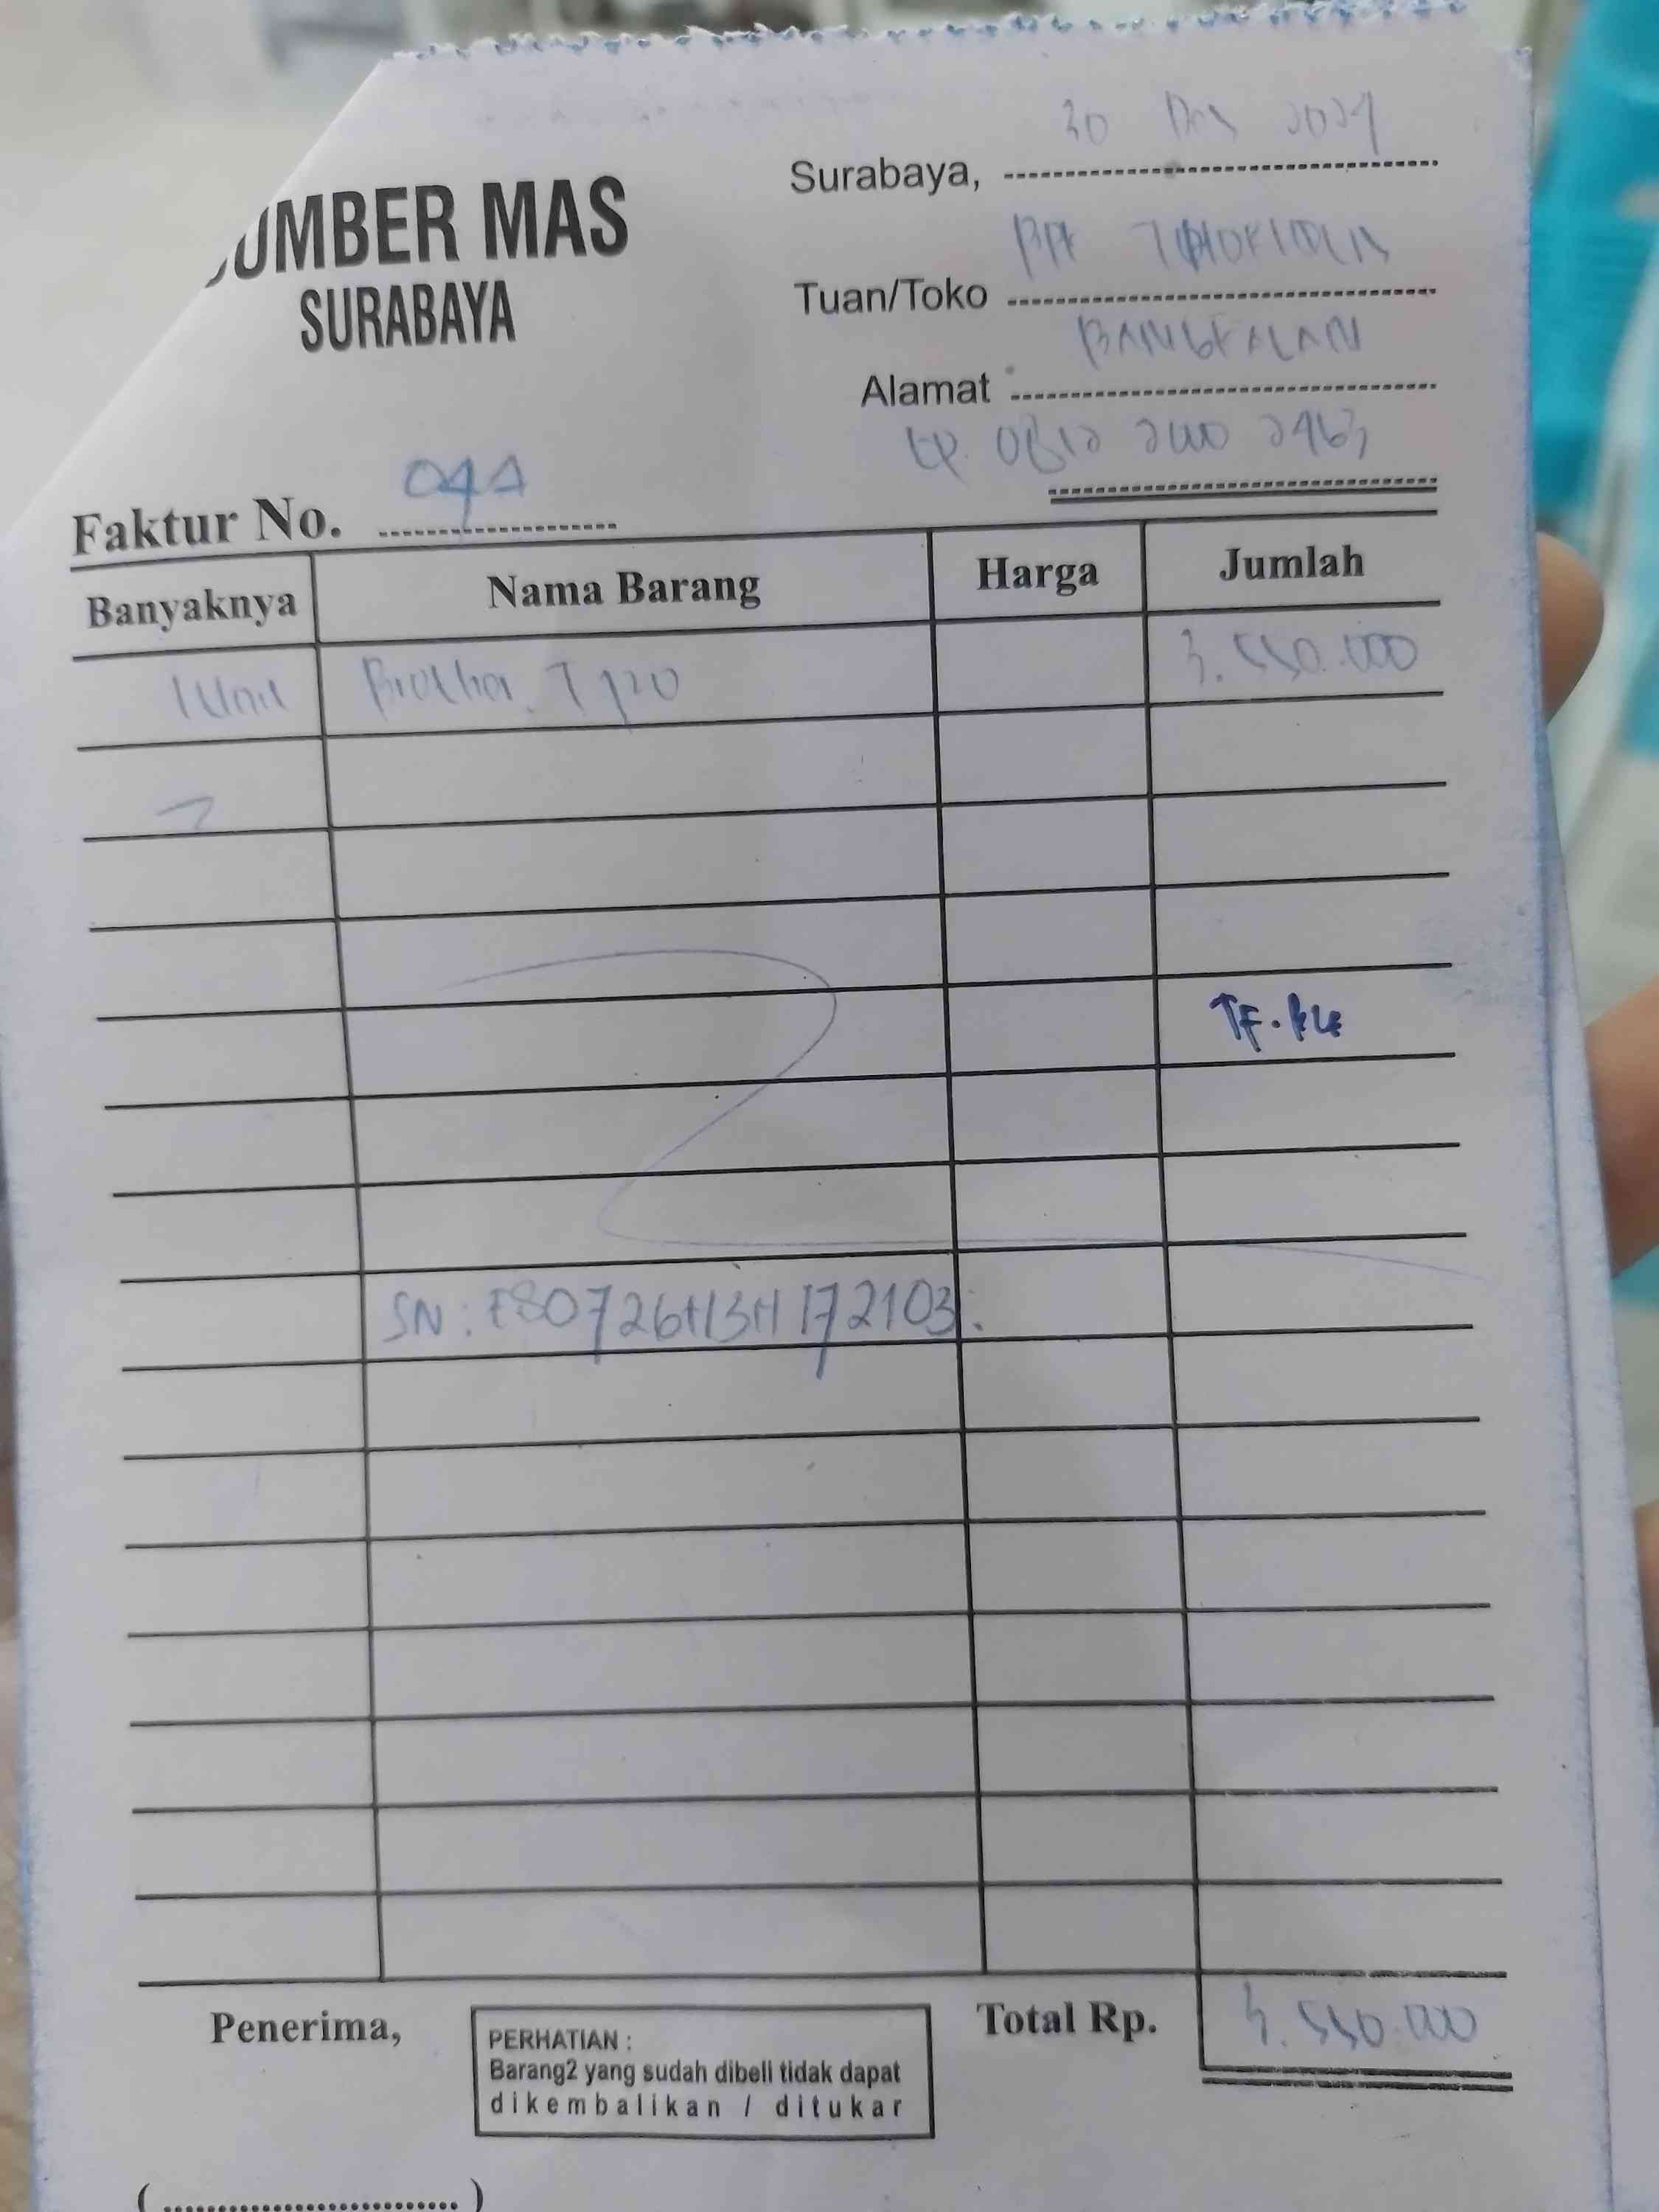 UMBER MAS
SURABAYA
Surabaya, 30 Des 2024
Tuan/Toko
Alamat BANGKALAN
Faktur No. 044
Banyaknya Nama Barang Harga Jumlah
1 Unit Brother T 3.550.000
SN: E80726H3H172103.
Penerima,
PERHATIAN :
Barang2 yang sudah dibeli tidak dapat
dikembalikan / ditukar
Total Rp. 3.550.000
(..............................)